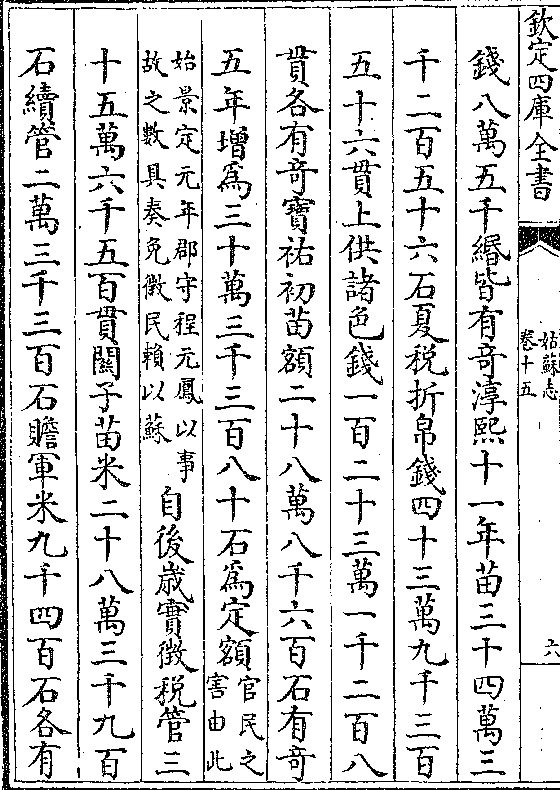 欽定四庫全書
姑蘇志
卷十五
六
錢八萬五千緡皆有奇淳熙十一年苗三十四萬三
千二百五十六石夏税折帛錢四十三萬九千三百
五十六貫上供諸色錢一百二十三萬一千二百八
貫各有奇寶祐初苗額二十八萬八千六百石有奇
五年增爲三十萬三千三百八十石爲定額官民之
害由此
始景定元年郡守程元鳳以事
故之數具奏免徵民賴以蘇
自後歳實徵税管三
十五萬六千五百貫關子苗米二十八萬三千九百
石續管二萬三千三百石贍軍米九千四百石各有